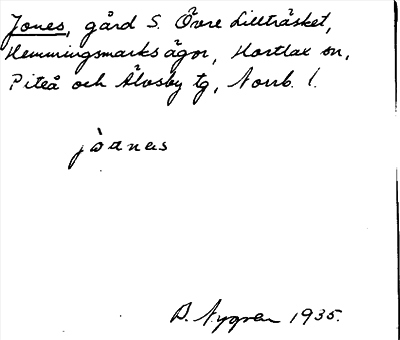 Jones, gård S. Övre Lillträsket,
Hemmingsmarks ägor, Hortlax sn,
Piteå och Älvsby tg, Norrb. l.
jò a n e s
B. Nygren 1935.